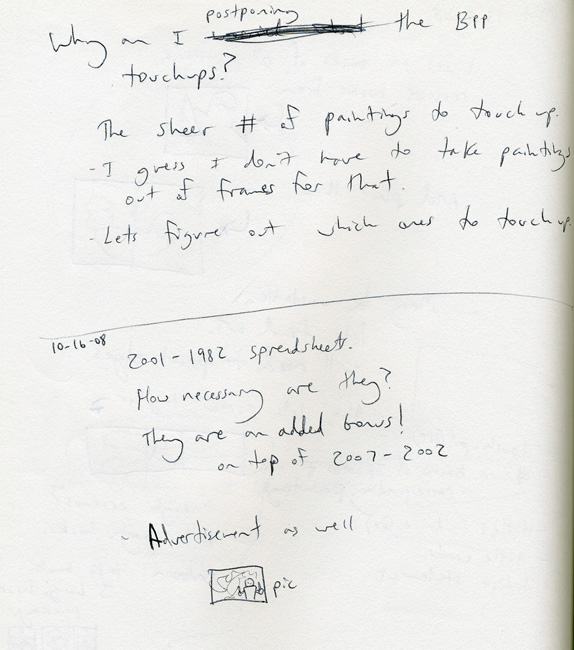 postponing
Why am I the Bpp
touchups?
The sheer # of paintings to touch up.
- I guess I don't have to take paintings
out of frames for that.
- Lets figure out which ones to touch up.
10-16-08
2001-1982 spreadsheets.
How necessary are they?
They are an added bonus!
on top of 2007-2002
- Advertisement as well
pic